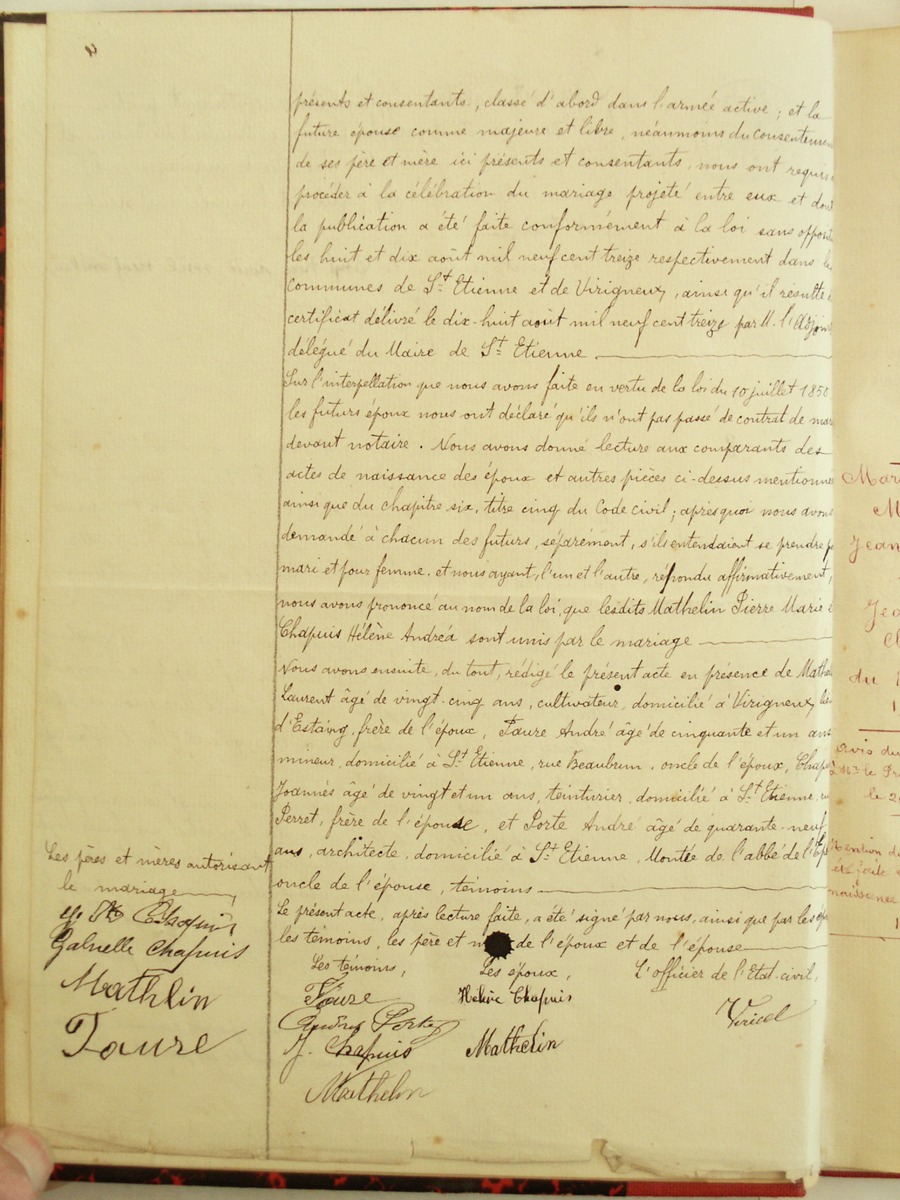 2
présents et consentants, classé d'abord dans l'armée active ; et la
future épouse comme majeure et libre, néanmoins du consentemen
de ses père et mère ici présents et consentants, nous ont requis
procéder à la célébration du mariage projeté entre eux et dont
la publication a été faite conformément à la loi sans opposi
les huit et dix août mil neuf cent treize respectivement dans les
communes de St Etienne et de Virigneux, ainsi qu'il résulte
certificat délivré le dix-huit août mil neuf cent treize par M. l'Adjoin
délégué du Maire de St Etienne.
Sur l'interpellation que nous avons faite en vertu de la loi du 10 juillet 1850
les futurs époux nous ont déclaré qu'ils n'ont pas passé de contrat de mar
devant notaire. Nous avons donné lecture aux comparants des
actes de naissance des époux et autres pièces ci-dessus mentionné
ainsi que du chapitre six, titre cinq du Code civil ; après quoi nous avons
demandé à chacun des futurs, séparément, s'ils entendaient se prendre p
mari et pour femme, et nous ayant, l'un et l'autre, répondu affirmativement,
nous avons prononcé au nom de la loi, que lesdits Mathelin Pierre Marie e
Chapuis Hélène Andréa sont unis par le mariage
Nous avons ensuite, du tout, rédigé le présent acte en présence de Mathe
Laurent âgé de vingt-cinq ans, cultivateur, domicilié à Virigneux, lieu
d'Estaing, frère de l'époux, Faure André âgé de cinquante et un ans
mineur, domicilié à St Etienne, rue Beaubrun, oncle de l'époux, Chapu
Joannès âgé de vingt et un ans, teinturier, domicilié à St Etienne, ru
Perret, frère de l'épouse, et Porte André âgé de quarante-neuf
ans, architecte, domicilié à St Etienne, Montée de l'abbé de l'Epé
oncle de l'épouse, témoins
Le présent acte, après lecture faite, a été signé par nous, ainsi que par les ép
les témoins, les père et m de l'époux et de l'épouse
Les témoins, Les époux, L'officier de l'Etat-civil,
Faure Hélène Chapuis Viricel
André Porte
J. Chapuis Mathelin
Mathelin
Les pères et mères autorisant
le mariage
Chapuis
Gabrielle Chapuis
Mathlin
Faure
Mar
M
Jean
Je
C
du
1
avis du
le Pr
le 2
Mention d
été faite
naissance
1